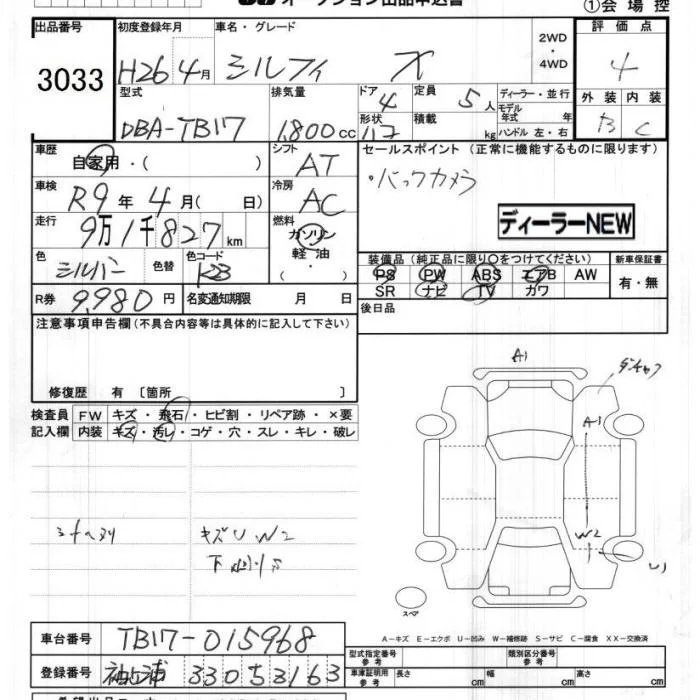 オークション出品申込書 ①会場控
出品番号 初度登録年月 車名・グレード 2WD・4WD 評価点
3033 H26年4月 シルフィ X 4
型式 排気量 ドア 定員 ディーラー・並行 外装 内装
DBA-TB17 1,800cc 4 5人 モデル年式 年 B C
形状 積載 kg ハンドル 左・右
車歴 シフト セールスポイント (正常に機能するものに限ります)
自家用・( ) AT ・バックカメラ
車検 冷房
R9年4月(日) AC ディーラーNEW
走行 燃料
9万1千827km ガソリン・軽油・( )
色 色替 色コード 装備品 (純正品に限り○をつけてください) 新車保証書
シルバー K23 PS PW ABS エアB AW 有・無
SR ナビ TV カワ
R券 9,980円 名変通知期限 月 日 後日品
注意事項申告欄(不具合内容等は具体的に記入して下さい)
修復歴 有 〔箇所 〕
検査員 FW キズ・飛石・ヒビ割・リペア跡・×要
記入欄 内装 キズ・汚レ・コゲ・穴・スレ・キレ・破レ
A1
A1
W2
キズU W2
スペア
A-キズ E-エクボ U-凹み W-補修跡 S-サビ C-腐食 XX-交換済
車台番号 TB17-015968 型式指定番号 参考 類別区分番号 参考
登録番号 袖ヶ浦 330 5 3163 車庫証明用 参考 長さ cm 幅 cm 高さ cm